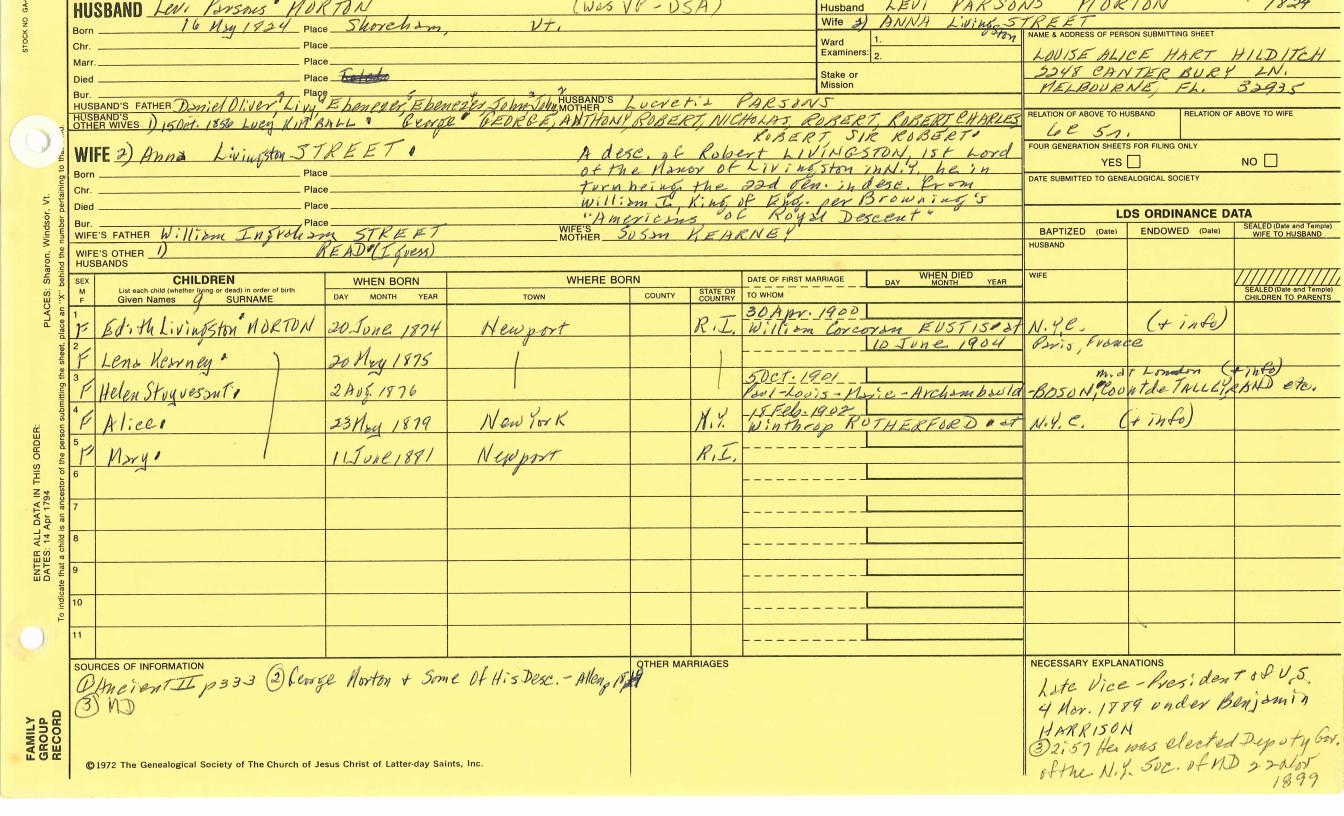 HUSBAND Levi Parsons MORTON (Was VP - USA)
Born 16 May 1824 Place Shoreham, Vt.
Chr. Place
Marr. Place
Died Place
Bur. Place
HUSBAND'S FATHER Daniel Oliver, Livy, Ebenezer, Ebenezer, John, John, HUSBAND'S MOTHER Lucretia PARSONS
HUSBAND'S OTHER WIVES 1) 15 Oct. 1856 Lucy KIMBALL George GEORGE, ANTHONY, ROBERT, NICHOLAS, ROBERT, ROBERT, CHARLES
ROBERT, SIR ROBERT.
Husband LEVI PARSONS MORTON 1824
Wife 2) ANNA Livingston STREET
Ward Examiners: 1.
2.
Stake or Mission
NAME & ADDRESS OF PERSON SUBMITTING SHEET
LOUISE ALICE HART HILDITCH
2248 CANTERBURY LN.
MELBOURNE, FL. 32935
RELATION OF ABOVE TO HUSBAND RELATION OF ABOVE TO WIFE
6c 5r.
FOUR GENERATION SHEETS FOR FILING ONLY
YES NO
DATE SUBMITTED TO GENEALOGICAL SOCIETY
WIFE 2) Anna Livingston STREET.
Born Place
Chr. Place
Died Place
Bur. Place
A desc. of Robert LIVINGSTON, 1st Lord
of the Manor of Livingston in N.Y., he in
turn being the 22d gen. in desc. from
William I, King of Eng. per Browning's
"Americans of Royal Descent"
WIFE'S FATHER William Ingraham STREET WIFE'S MOTHER Susan KEARNEY
WIFE'S OTHER HUSBANDS 1) READ (I guess)
LDS ORDINANCE DATA
BAPTIZED (Date) ENDOWED (Date) SEALED (Date and Temple) WIFE TO HUSBAND
HUSBAND
WIFE
SEALED (Date and Temple) CHILDREN TO PARENTS
SEX M F
CHILDREN
List each child (whether living or dead) in order of birth
Given Names SURNAME
WHEN BORN
DAY MONTH YEAR
WHERE BORN
TOWN COUNTY STATE OR COUNTRY
DATE OF FIRST MARRIAGE
TO WHOM
WHEN DIED
DAY MONTH YEAR
1 F Edith Livingston MORTON 20 June 1874 Newport R.I. 30 Apr. 1900 William Corcoran EUSTIS at N.Y.C. (+ info)
2 F Lena Kearney 20 May 1875 10 June 1904 Paris, France
3 F Helen Stuyvesant 2 Aug. 1876 5 Oct. 1901 Paul-Louis-Marie-Archambauld-BOSON, Count de TALLEYRAND etc. m. at London (+ info)
4 F Alice 23 May 1879 New York N.Y. 18 Feb. 1902 Winthrop RUTHERFORD at N.Y.C. (+ info)
5 F Mary 11 June 1881 Newport R.I.
6
7
8
9
10
11
SOURCES OF INFORMATION
① Ancient II p 333 ② George Morton + Some Of His Desc. - Allen, p
③ MD
OTHER MARRIAGES
NECESSARY EXPLANATIONS
Late Vice-President of U.S.
4 Mar. 1889 under Benjamin
HARRISON
③ 2:57 He was elected Deputy Gov.
of the N.Y. Soc. of MD 22 Nov
1899
©1972 The Genealogical Society of The Church of Jesus Christ of Latter-day Saints, Inc.
FAMILY GROUP RECORD
ENTER ALL DATA IN THIS ORDER:
DATES: 14 Apr 1794
PLACES: Sharon, Windsor, Vt.
To indicate that a child is an ancestor of the person submitting the sheet, place an "X" behind the number pertaining to
STOCK NO.